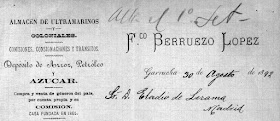 ALMACÉN DE ULTRAMARINOS
Y
COLONIALES.
COMISIONES, CONSIGNACIONES Y TRÁNSITOS.
Depósito de Arroz, Petróleo
Y
AZUCAR.
Compra y venta de géneros del país,
por cuenta propia y en
COMISIÓN.
CASA FUNDADA EN 1865.
el 1º Set
Fco BERRUEZO LOPEZ
Garrucha 30 de Agosto de 1892
Sr. D. Eladio de Lezama
Madrid